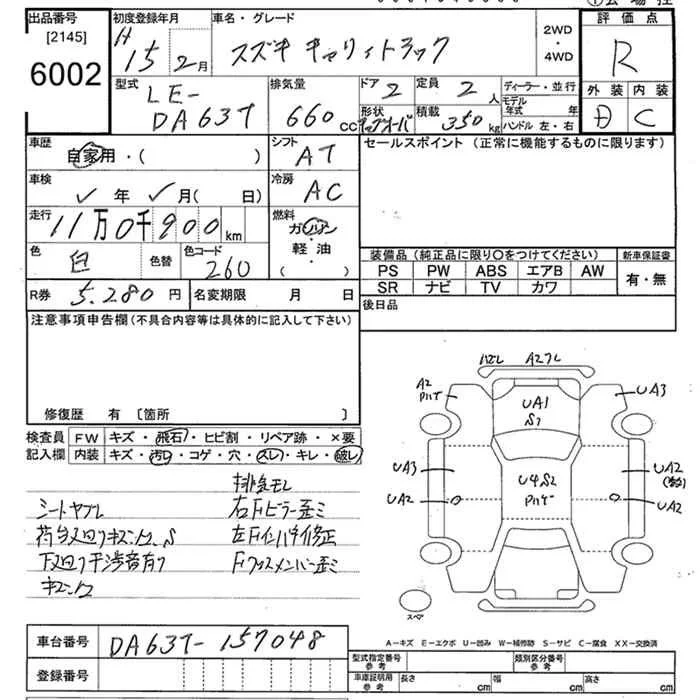 出品番号
[2145]
6002
初度登録年月
H15 2月
車名・グレード
スズキ キャリィトラック
2WD
・
4WD
評価点
R
型式
LE-
DA63T
排気量
660cc
ドア 2
定員 2人
形状
積載 350kg
ディーラー・並行
モデル
年式 年
ハンドル 左・右
外装 内装
D C
車歴
自家用・( )
シフト
AT
車検
年 月( 日)
冷房
AC
走行
11万0千900km
燃料
ガソリン
・
軽油
( )
色
白
色替
色コード
260
R券 5.280円
名変期限 月 日
セールスポイント(正常に機能するものに限ります)
装備品(純正品に限り○をつけてください)
新車保証書
PS PW ABS エアB AW
SR ナビ TV カワ
有・無
後日品
注意事項申告欄(不具合内容等は具体的に記入して下さい)
修復歴 有 [箇所 ]
検査員 FW キズ・飛石・ヒビ割・リペア跡・×要
記入欄 内装 キズ・汚レ・コゲ・穴・スレ・キレ・破レ
排気モレ
シートヤブレ 右Fピラー歪ミ
左Fインパネ修正
下廻り干渉音有り Fクロスメンバー歪ミ
A2
ハゲ
UA1
S1
UA3
UA3
UA2
U4S2
ハゲ
UA2
UA2
スペア
A-キズ E-エクボ U-凹み W-補修跡 S-サビ C-腐食 XX-交換済
車台番号 DA63T-157048
登録番号
型式指定番号
参考
類別区分番号
参考
車庫証明用
参考
長さ cm
幅 cm
高さ cm